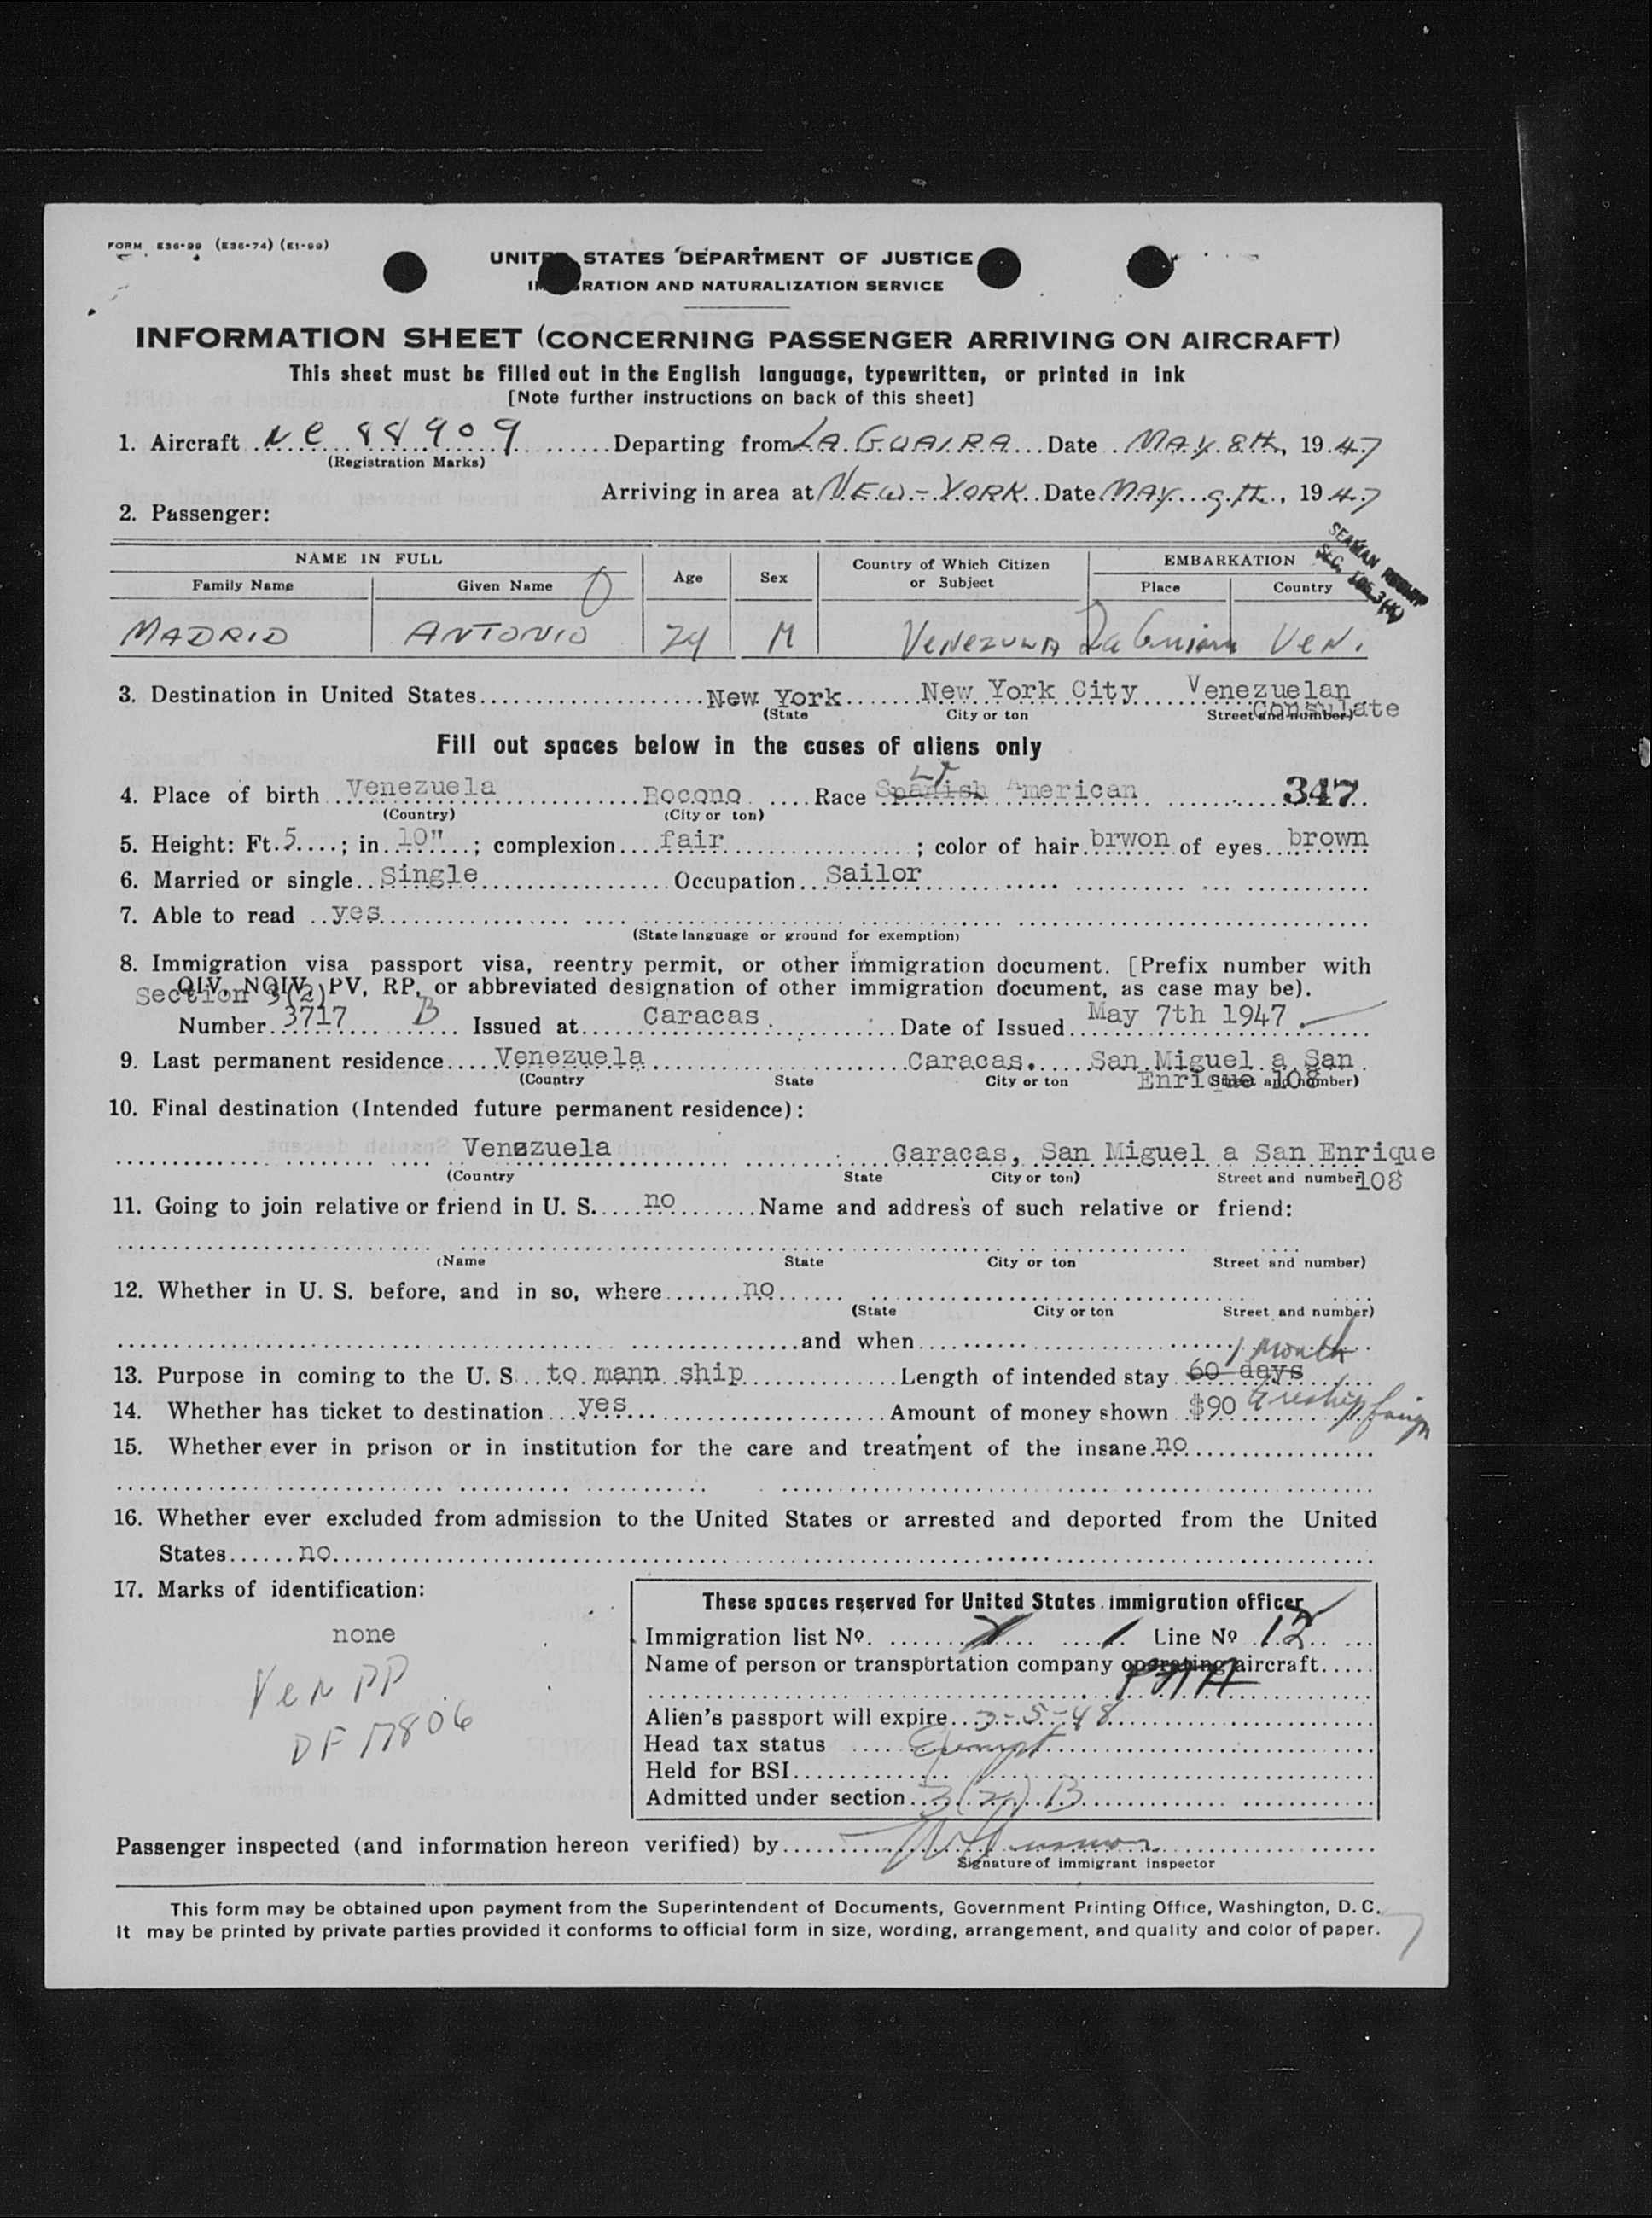 FORM E36-99 (E36-74) (E1-99)
UNITED STATES DEPARTMENT OF JUSTICE
RATION AND NATURALIZATION SERVICE
INFORMATION SHEET (CONCERNING PASSENGER ARRIVING ON AIRCRAFT)
This sheet must be filled out in the English language, typewritten, or printed in ink
[Note further instructions on back of this sheet]
1. Aircraft NC 88909 Departing from LA GUAIRA Date MAY 8th, 1947
(Registration Marks)
Arriving in area at NEW-YORK Date MAY 9th, 1947
2. Passenger:
SEAMAN
SEC.
NAME IN FULL Age Sex Country of Which Citizen or Subject EMBARKATION
Family Name Given Name Place Country
MADRID ANTONIO 24 M VENEZUELA La Guaira VEN.
3. Destination in United States New York New York City Venezuelan
Consulate
(State City or ton Street and number)
Fill out spaces below in the cases of aliens only
4. Place of birth Venezuela Bocono Race Spanish American 347
(Country) (City or ton)
5. Height: Ft. 5; in. 10"; complexion fair; color of hair brwon of eyes brown
6. Married or single Single Occupation Sailor
7. Able to read yes
(State language or ground for exemption)
8. Immigration visa passport visa, reentry permit, or other immigration document. [Prefix number with
QIV, NQIV, PV, RP, or abbreviated designation of other immigration document, as case may be).
Section 3(2)
Number 3717 B Issued at Caracas Date of Issued May 7th 1947.
9. Last permanent residence Venezuela Caracas. San Miguel a San
Enrique 108
(Country State City or ton Street and number)
10. Final destination (Intended future permanent residence):
Venezuela Caracas, San Miguel a San Enrique
(Country State City or ton) Street and number 108
11. Going to join relative or friend in U. S. no Name and address of such relative or friend:
(Name State City or ton Street and number)
12. Whether in U. S. before, and in so, where no
(State City or ton Street and number)
and when
1 month
13. Purpose in coming to the U. S to mann ship Length of intended stay 60 days
14. Whether has ticket to destination yes Amount of money shown $90
15. Whether ever in prison or in institution for the care and treatment of the insane no
16. Whether ever excluded from admission to the United States or arrested and deported from the United
States no
17. Marks of identification:
none
Ven PP
DF 17806
These spaces reserved for United States immigration officer
Immigration list No. 1 Line No 12
Name of person or transportation company operating aircraft
Alien's passport will expire 3-5-48
Head tax status Exempt
Held for BSI
Admitted under section 3(2) B
Passenger inspected (and information hereon verified) by
Signature of immigrant inspector
This form may be obtained upon payment from the Superintendent of Documents, Government Printing Office, Washington, D. C.
It may be printed by private parties provided it conforms to official form in size, wording, arrangement, and quality and color of paper.